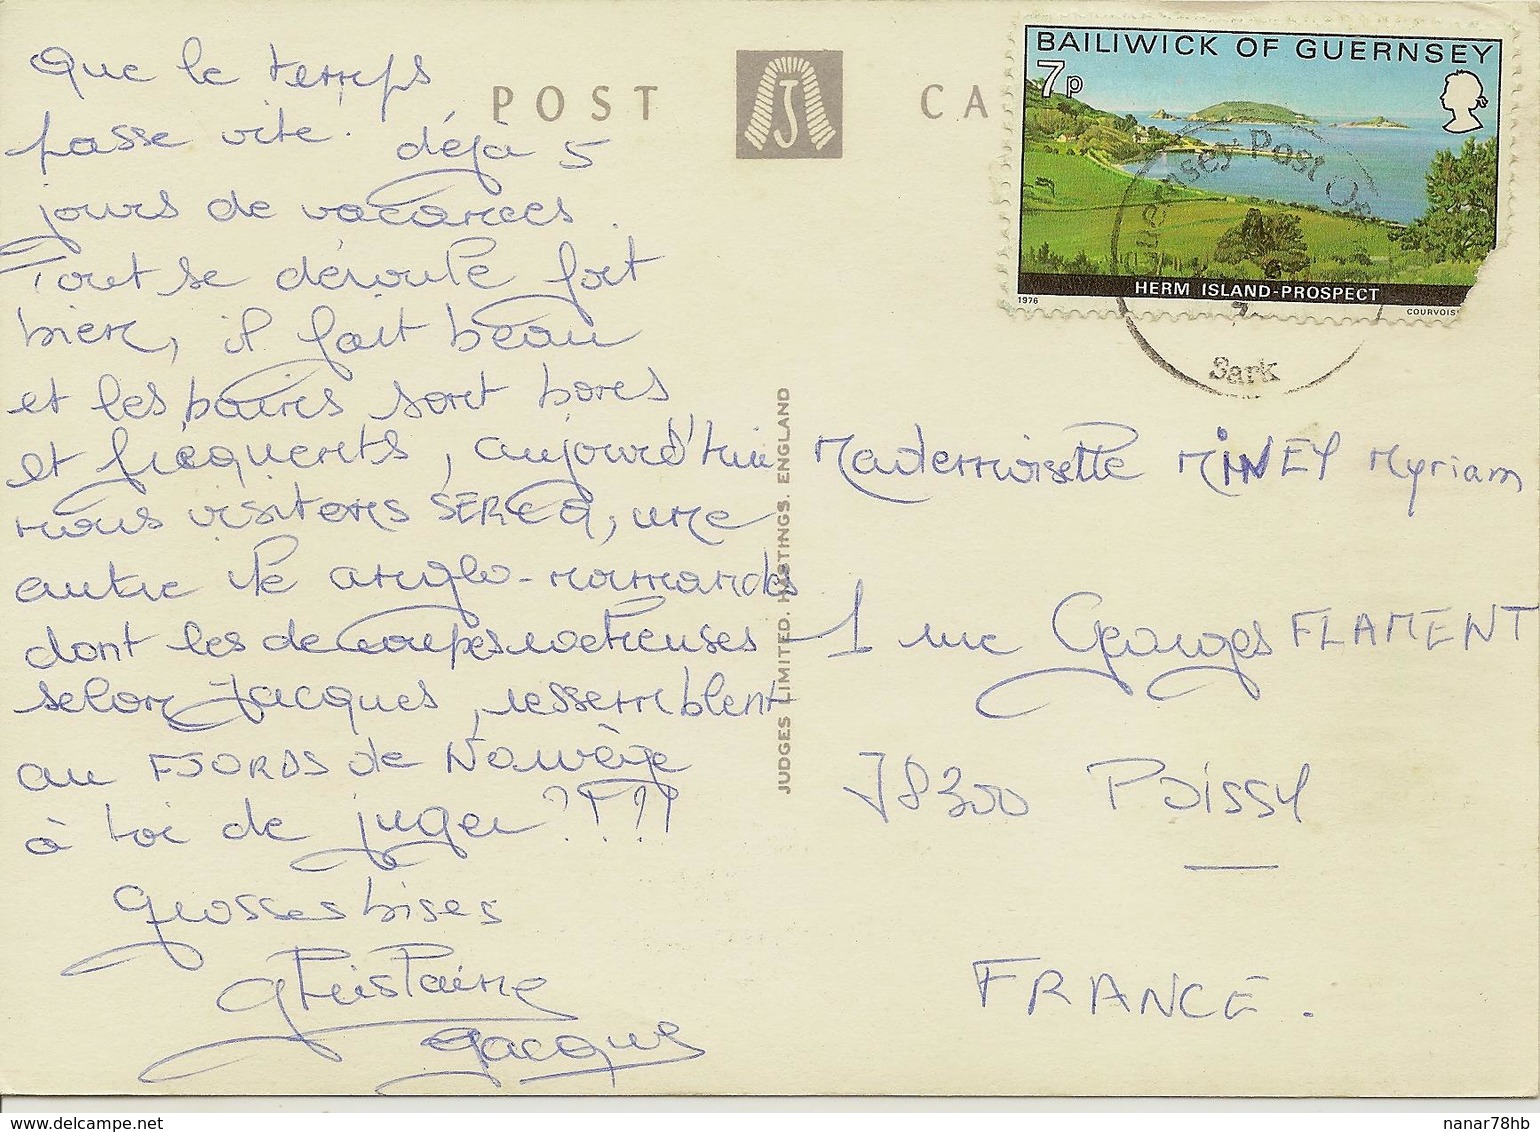 Que le temps
passe vite. déjà 5
jours de vacances.
Tout se déroule fort
bien, il fait beau
et les bains sont bons
et fréquents, aujourd'hui
nous visitons SERCQ, une
autre île anglo-normandes
dont les decoupes rocheuses
selon Jacques, ressemblent
au FJORDS de Norvège
à toi de juger ?!?!
grosses bises
Ghislaine
Jacques
POST CA
JUDGES LIMITED. HASTINGS. ENGLAND
BAILIWICK OF GUERNSEY
7p
HERM ISLAND-PROSPECT
1976
COURVOIS
Guernsey Post Of
Sark
Mademoiselle MINEY Myriam
1 rue Georges FLAMENT
78300 POISSY
FRANCE.
nanar78hb